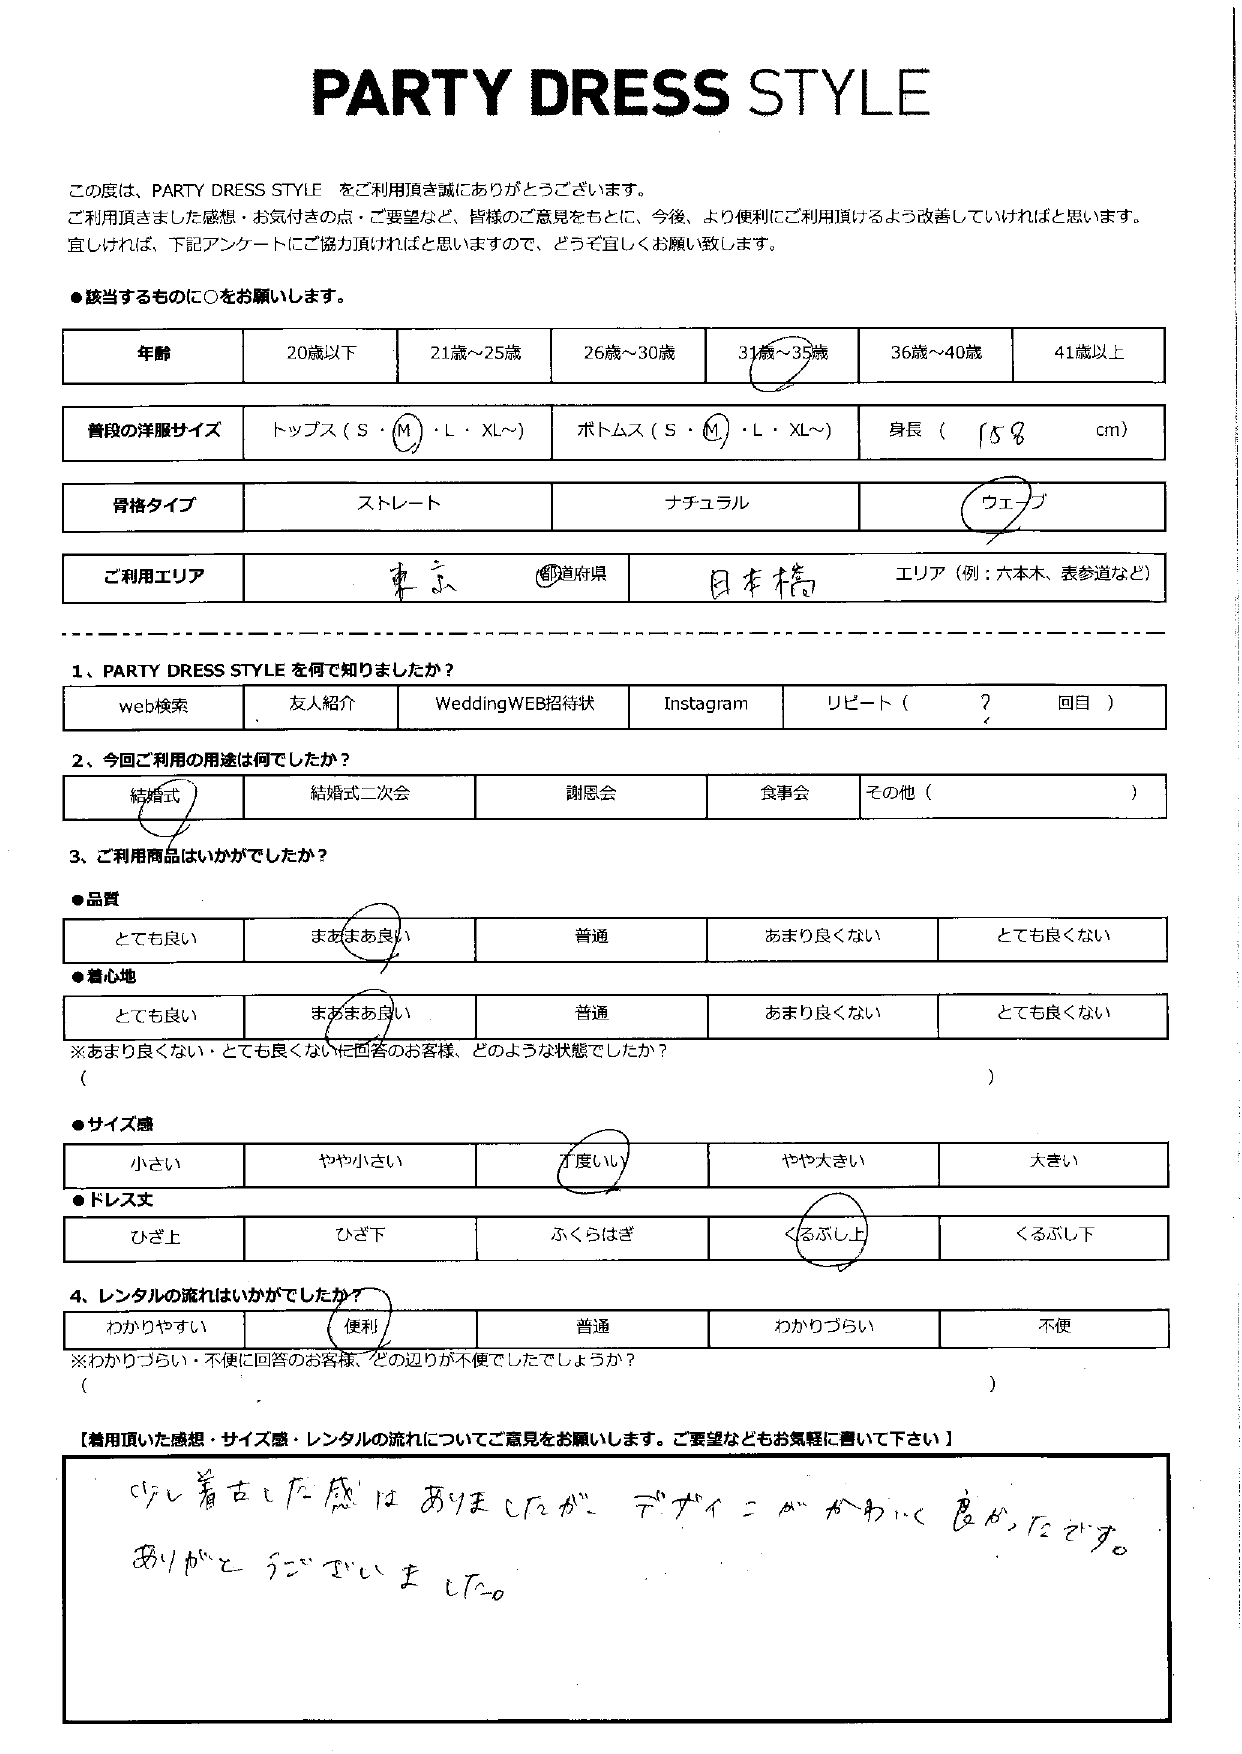 PARTY DRESS STYLE
この度は、PARTY DRESS STYLE をご利用頂き誠にありがとうございます。
ご利用頂きました感想・お気付きの点・ご要望など、皆様のご意見をもとに、今後、より便利にご利用頂けるよう改善していければと思います。
宜しければ、下記アンケートにご協力頂ければと思いますので、どうぞ宜しくお願い致します。
●該当するものに○をお願いします。
年齢 20歳以下 21歳～25歳 26歳～30歳 31歳～35歳 36歳～40歳 41歳以上
普段の洋服サイズ トップス ( S ・ M ・ L ・ XL～) ボトムス ( S ・ M ・ L ・ XL～) 身長 ( 158 cm)
骨格タイプ ストレート ナチュラル ウェーブ
ご利用エリア 東京 都道府県 日本橋 エリア（例：六本木、表参道など）
1、PARTY DRESS STYLE を何で知りましたか？
web検索 友人紹介 WeddingWEB招待状 Instagram リピート ( ? 回目 )
2、今回ご利用の用途は何でしたか？
結婚式 結婚式二次会 謝恩会 食事会 その他 ( )
3、ご利用商品はいかがでしたか？
●品質
とても良い まあまあ良い 普通 あまり良くない とても良くない
●着心地
とても良い まあまあ良い 普通 あまり良くない とても良くない
※あまり良くない・とても良くないに回答のお客様、どのような状態でしたか？
( )
●サイズ感
小さい やや小さい 丁度いい やや大きい 大きい
●ドレス丈
ひざ上 ひざ下 ふくらはぎ くるぶし上 くるぶし下
4、レンタルの流れはいかがでしたか？
わかりやすい 便利 普通 わかりづらい 不便
※わかりづらい・不便に回答のお客様、どの辺りが不便でしたでしょうか？
( )
【着用頂いた感想・サイズ感・レンタルの流れについてご意見をお願いします。ご要望などもお気軽に書いて下さい 】
少し着古した感はありましたが、デザインがかわいく良かったです。
ありがとうございました。